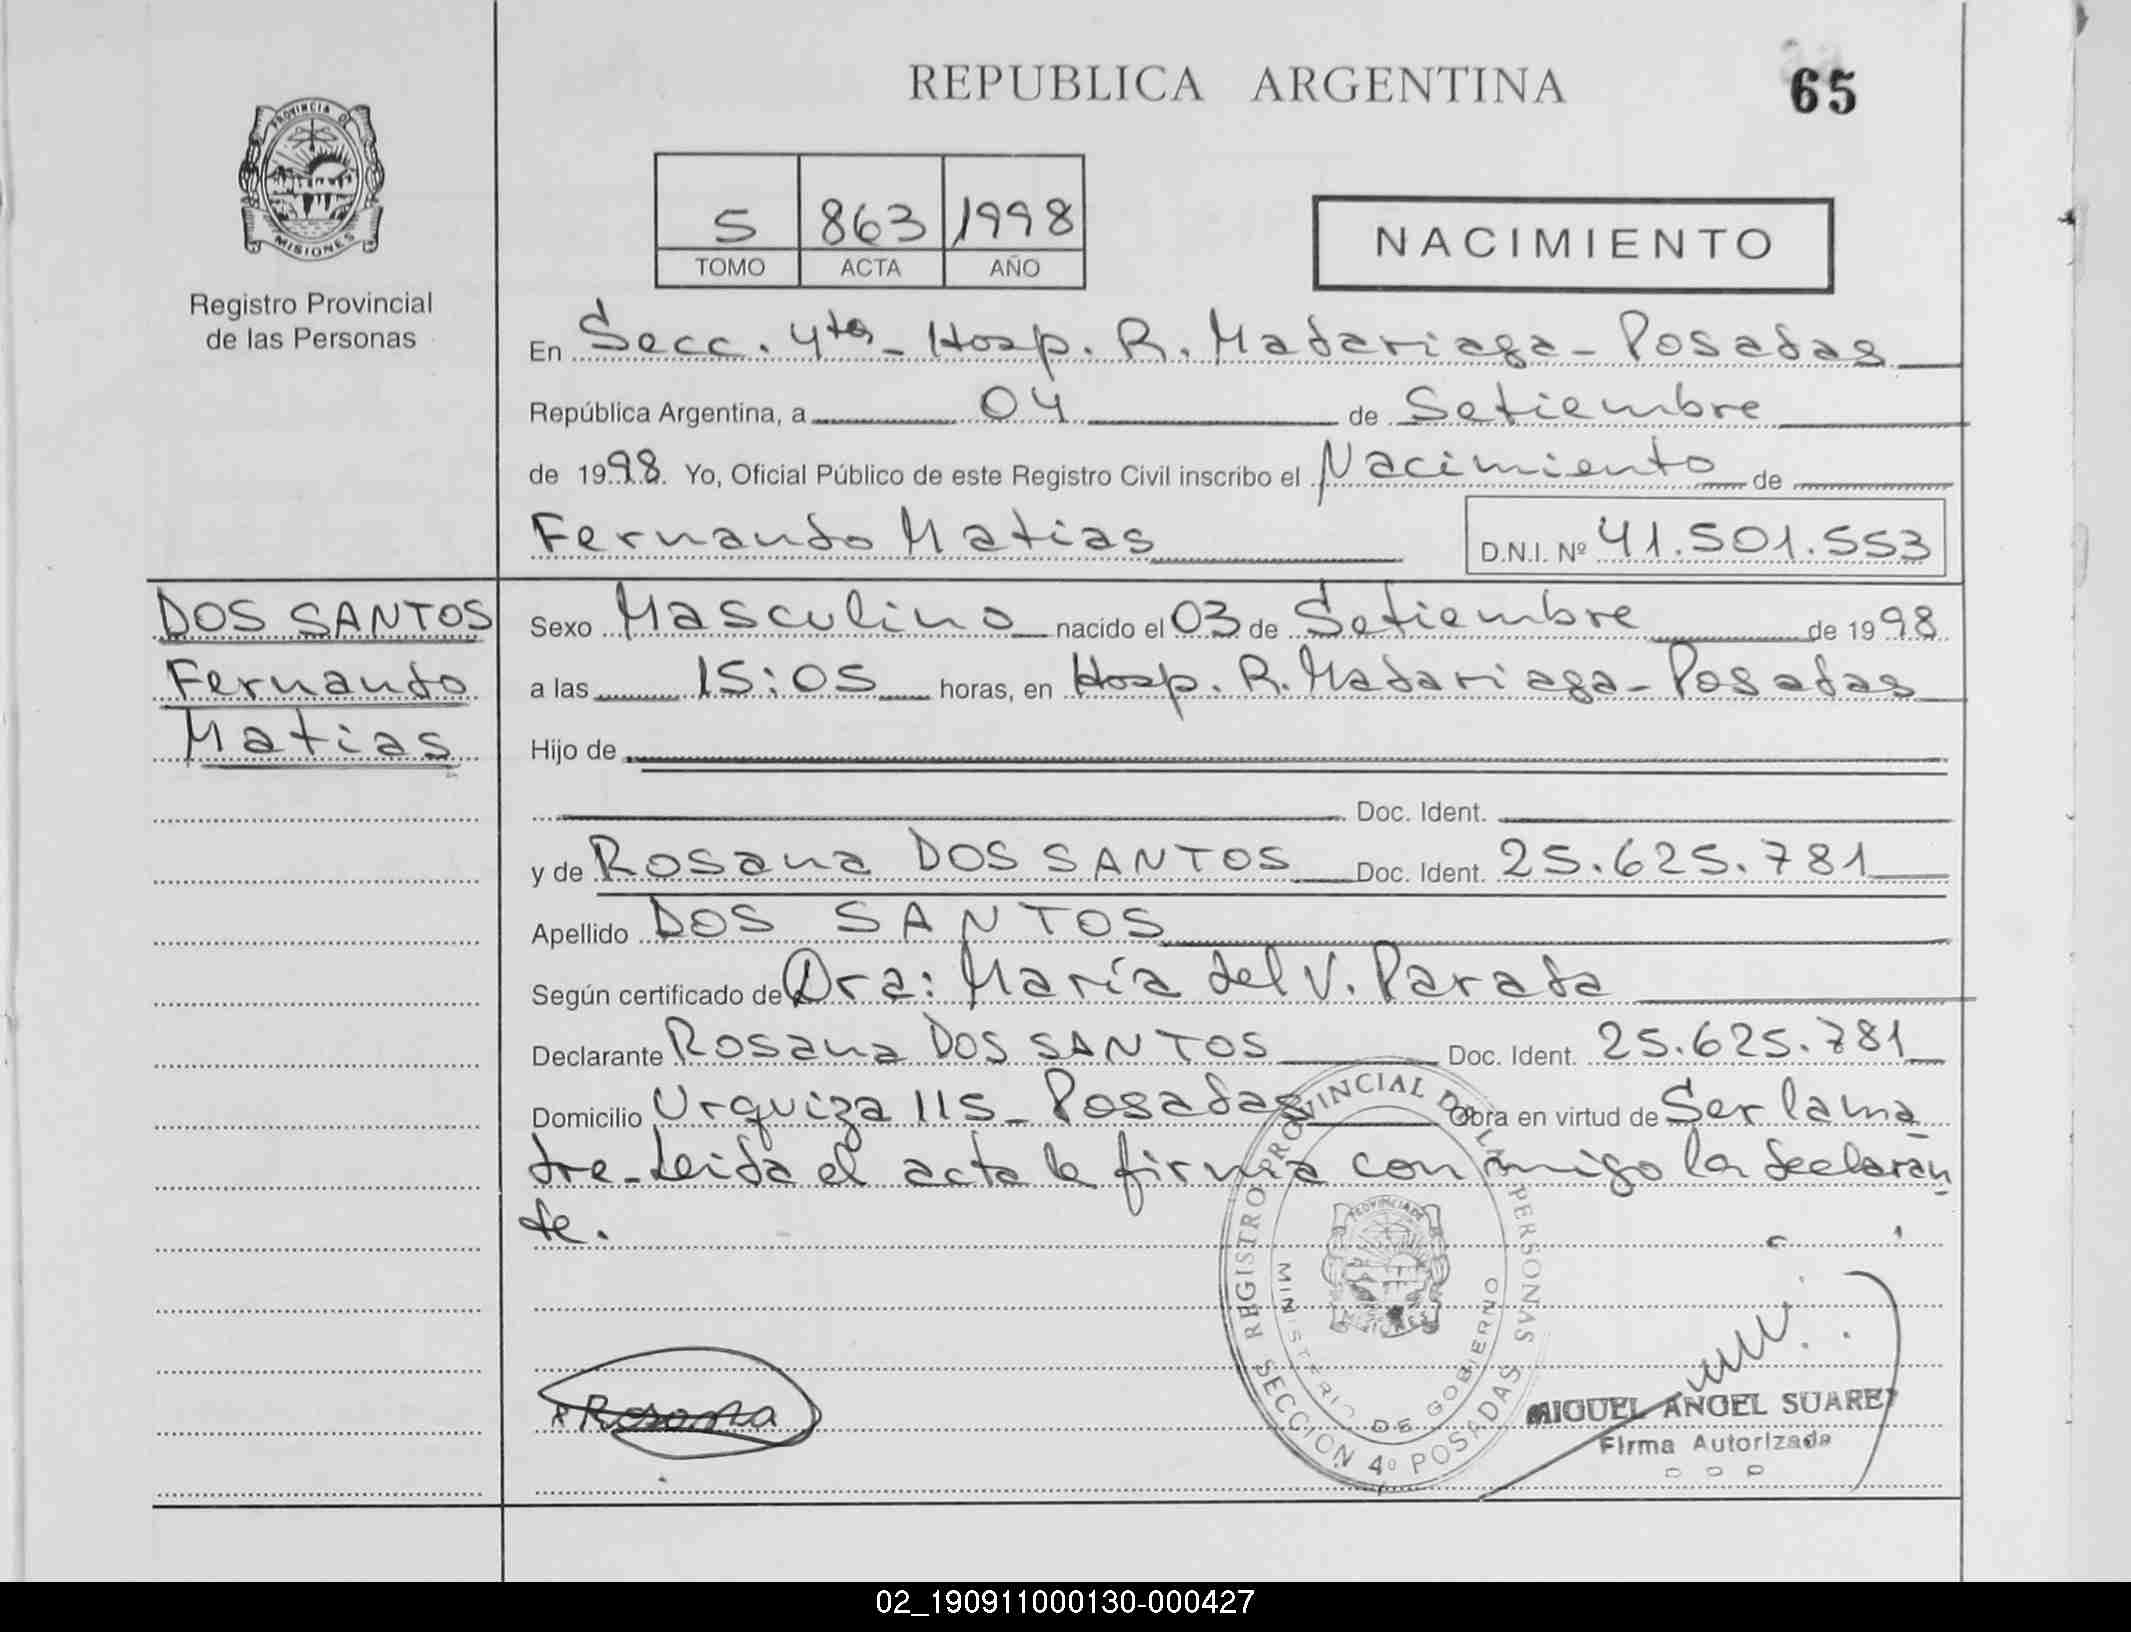 REPUBLICA ARGENTINA
65
PROVINCIA DE
MISIONES
Registro Provincial
de las Personas
5 863 1998
TOMO ACTA AÑO
NACIMIENTO
En Secc. 4ta - Hosp. R. Madariaga - Posadas
República Argentina, a 04 de Setiembre
de 1998. Yo, Oficial Público de este Registro Civil inscribo el Nacimiento de
Fernando Matias D.N.I. Nº 41.501.553
DOS SANTOS
Fernando
Matias
Sexo Masculino nacido el 03 de Setiembre de 1998
a las 15:05 horas, en Hosp. R. Madariaga - Posadas
Hijo de
Doc. Ident.
y de Rosana DOS SANTOS Doc. Ident. 25.625.781
Apellido DOS SANTOS
Según certificado de Dra: María del V. Parada
Declarante Rosana DOS SANTOS Doc. Ident. 25.625.781
Domicilio Urquiza 115 - Posadas Obra en virtud de Ser la ma
dre - Leída el acta la firma conmigo la declaran
te.
REGISTRO PROVINCIAL DE LAS PERSONAS
MINISTERIO DE GOBIERNO
SECCION 4º POSADAS
Rosana
MIGUEL ANGEL SUAREZ
Firma Autorizada
02_190911000130-000427